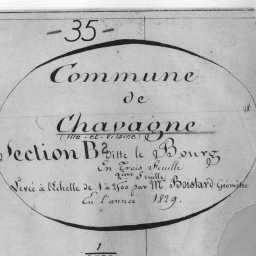 -35-
Commune
de
Chavagne
(Ille-et-Vilaine)
Section B² Ditte le Bourg
En Trois Feuille
2ème Feuille
Levée à l'Echelle de 1 à 2500 par Mr Boistard Géomètre
En l'année 1829.
1